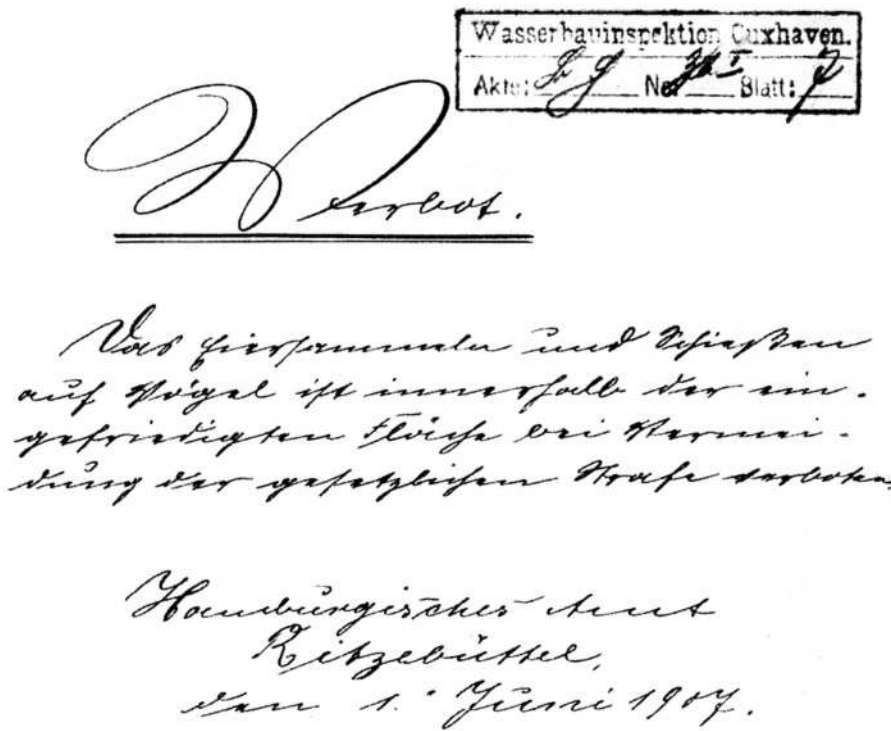 Wasserbauinspektion Cuxhaven.
Akte: No. Blatt:
Verbot.
Das Eiersammeln und Schießen
auf Vögel ist innerhalb der ein-
gefriedigten Fläche bei Vermei-
dung der gesetzlichen Strafe verboten.
Hamburgisches Amt
Ritzebüttel,
den 1. Juni 1907.